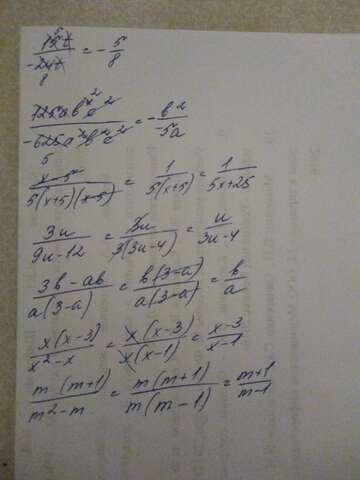 15t/-24t = -5/8
125ab⁴c²/-625a²b²c² = -b²/-5a
x-5/5(x+5)(x-5) = 1/5(x+5) = 1/5x+25
3u/9u-12 = 3u/3(3u-4) = u/3u-4
3b-ab/a(3-a) = b(3-a)/a(3-a) = b/a
x(x-3)/x²-x = x(x-3)/x(x-1) = x-3/x-1
m(m+1)/m²-m = m(m+1)/m(m-1) = m+1/m-1